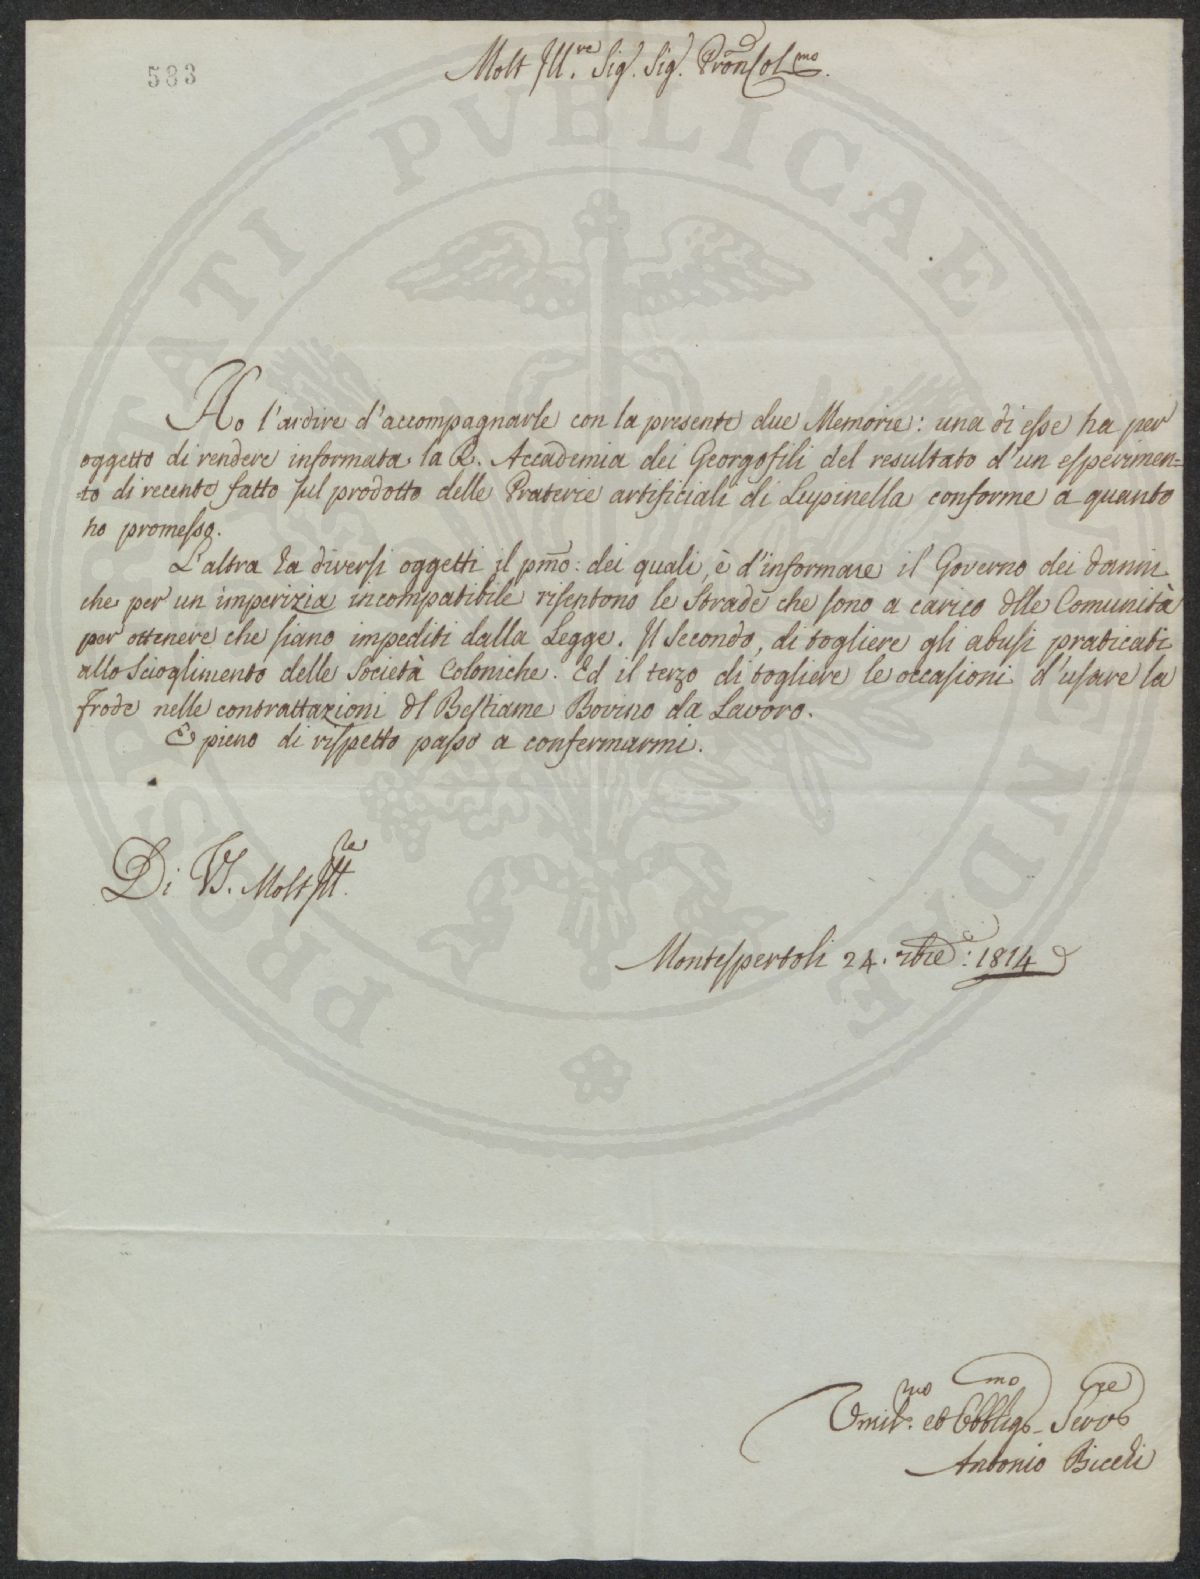 583
Molt Ill.re Sig. Sig. Pron Col.mo
Ho l'ardire d'accompagnarle con la presente due Memorie: una di esse ha per
oggetto di rendere informata la R. Accademia dei Georgofili del resultato d'un esperimen=
to di recente fatto sul prodotto delle Praterie artificiali di Lupinella conforme a quanto
ho promesso.
L'altra ha diversi oggetti il pmo: dei quali, è d'informare il Governo dei danni
che per un imperizia incompatibile risentono le Strade che sono a carico dlle Comunità
per ottenere che siano impediti dalla Legge. Il Secondo, di togliere gli abusi praticati
allo Scioglimento delle Società Coloniche. Ed il terzo di togliere le occasioni d'usare la
frode nelle contrattazioni dl Bestiame Bovino da Lavoro.
E pieno di rispetto passo a confermarmi.
Di VS. Molt Ill.re
Montespertoli 24. 1814
Umil.mo ed Obblig.mo Servre
Antonio Bicchi
PROSPERITATI PVBLICAE AVGENDAE